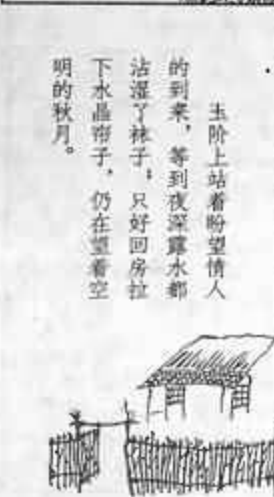 玉阶上站着盼望情人
的到来，等到夜深露水都
沾湿了袜子；只好回房拉
下水晶帘子，仍在望着空
明的秋月。